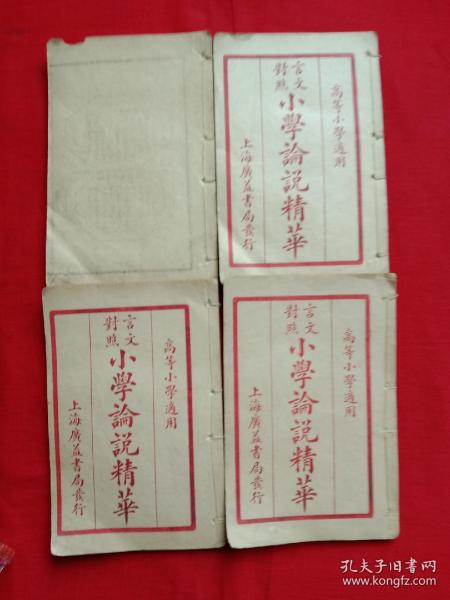 高等小學適用
言文對照
小學論說精華
上海廣益書局發行
高等小學適用
言文對照
小學論說精華
上海廣益書局發行
高等小學適用
言文對照
小學論說精華
上海廣益書局發行
孔夫子旧书网
www.kongfz.com